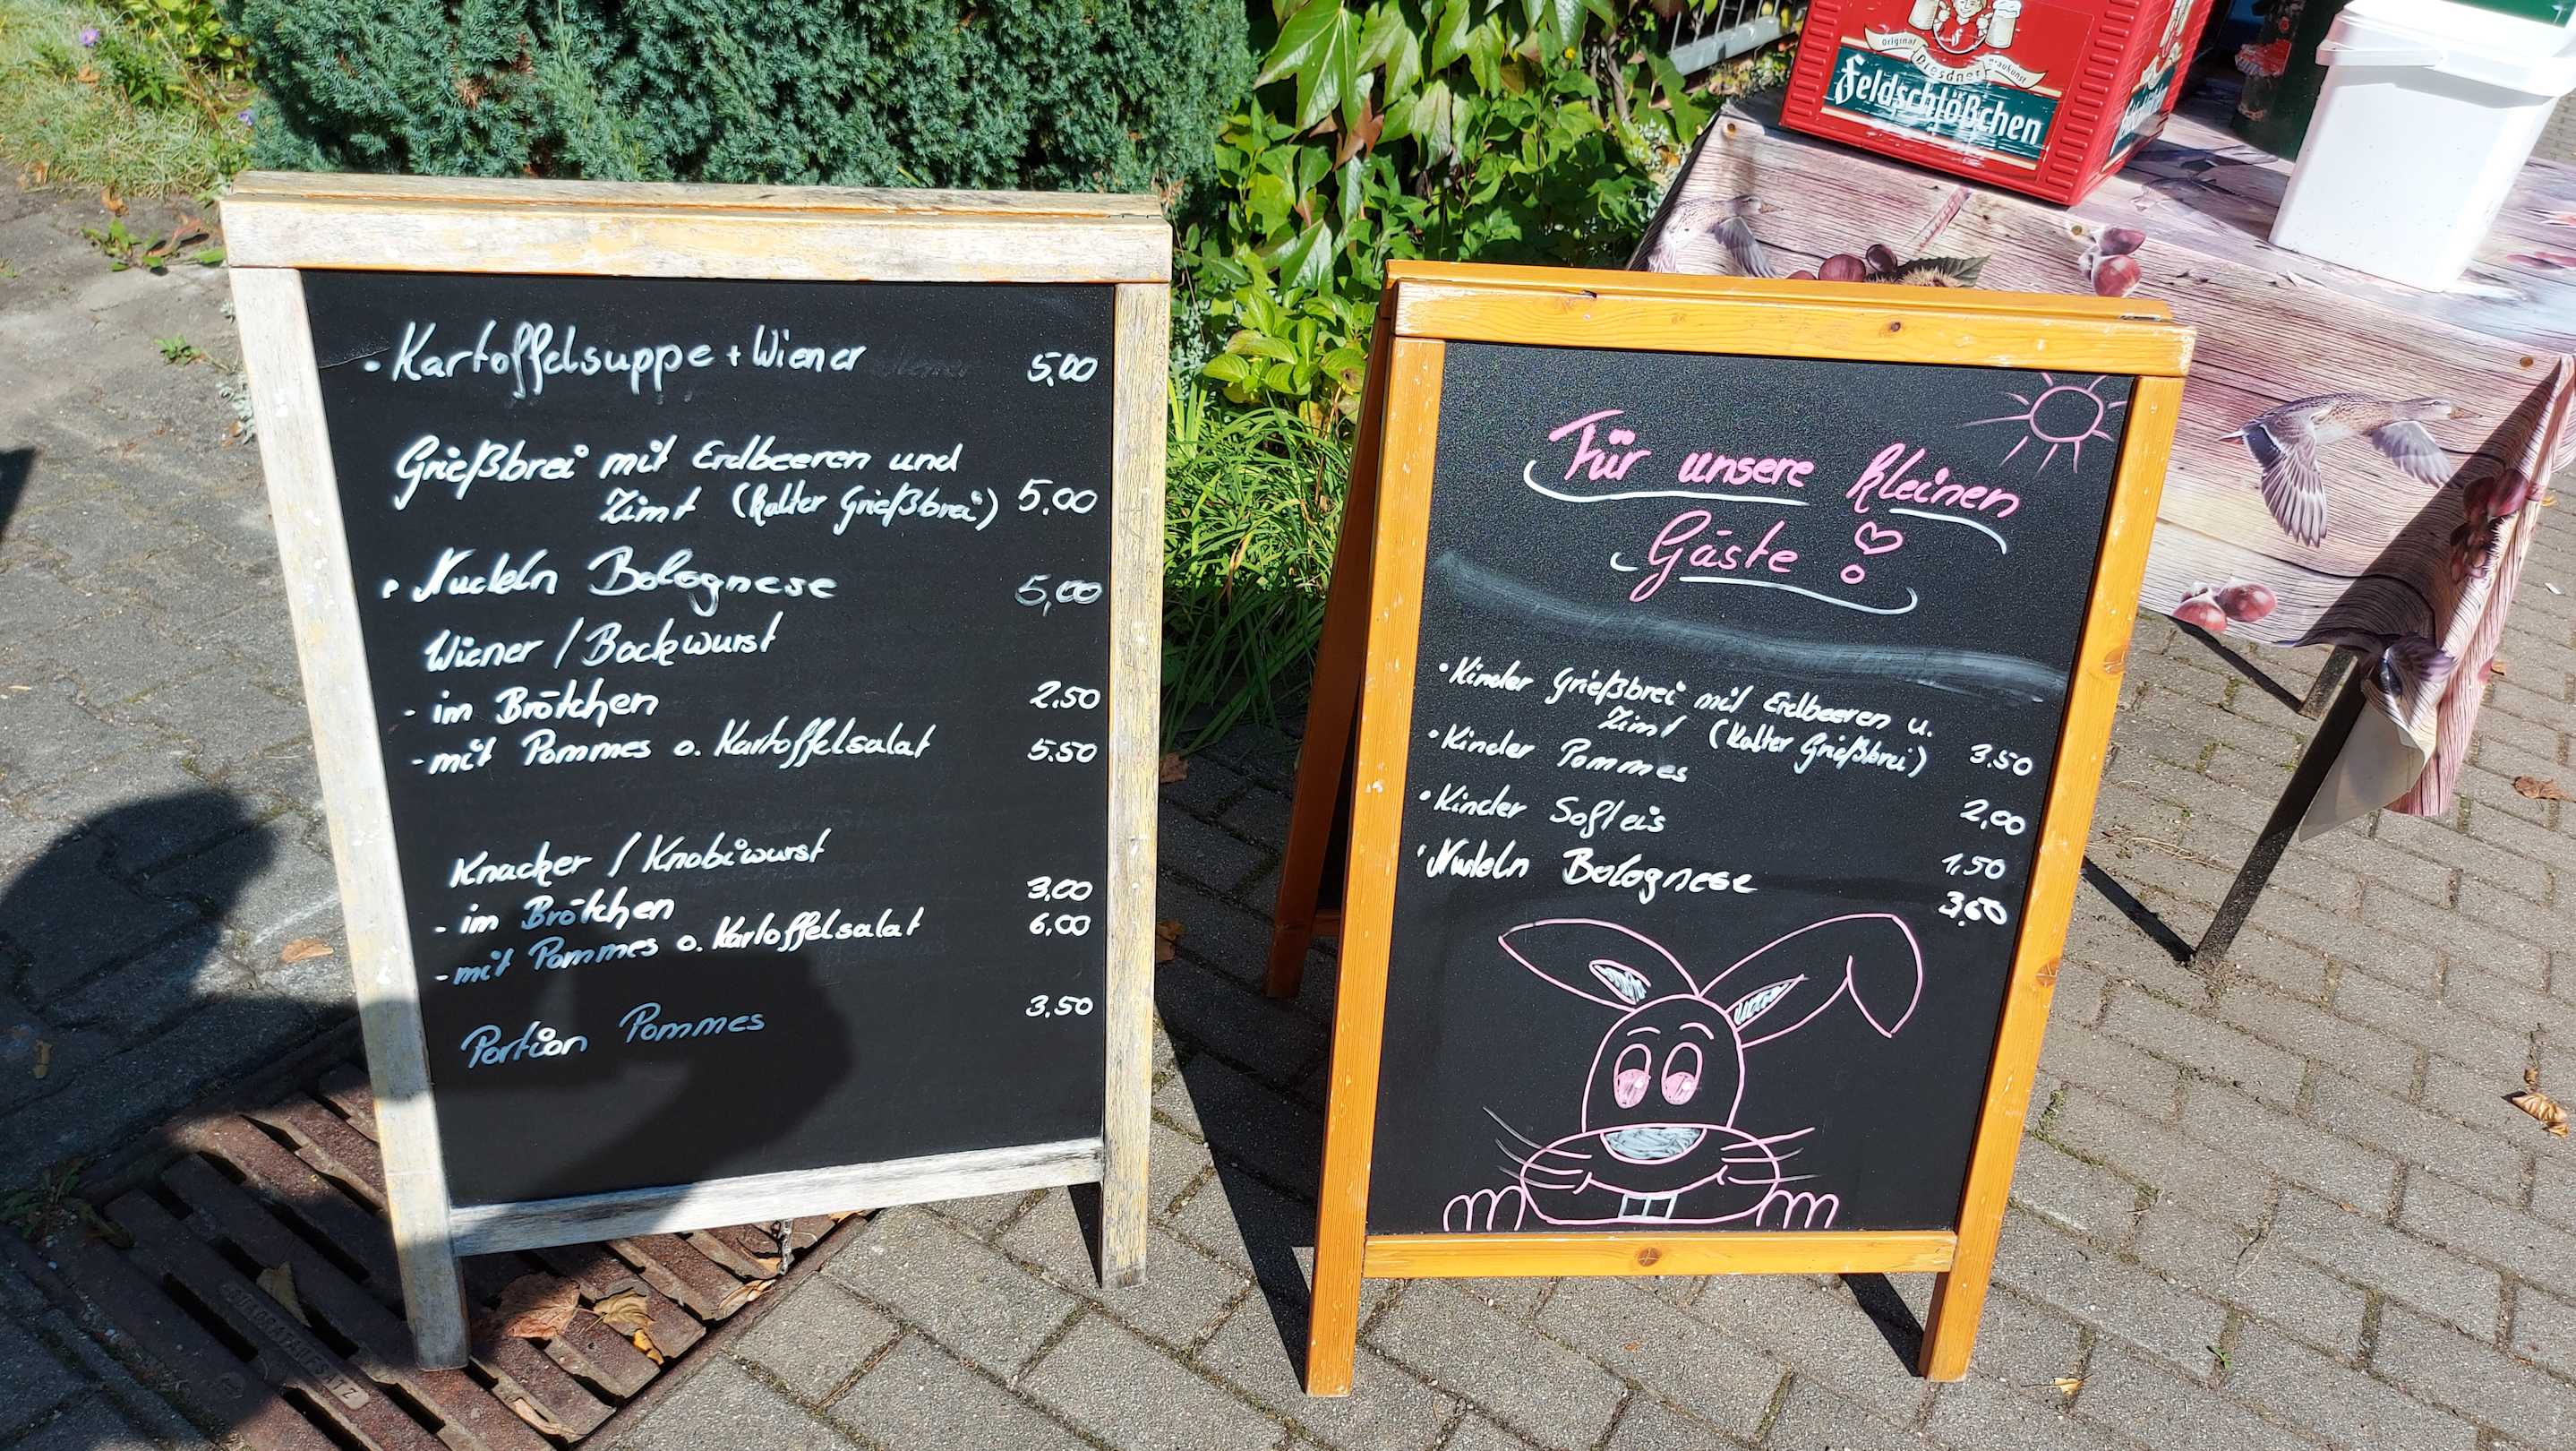 · Kartoffelsuppe + Wiener 5,00
Grießbrei mit Erdbeeren und
Zimt (kalter Grießbrei) 5,00
· Nudeln Bolognese 5,00
Wiener / Bockwurst
- im Brötchen 2.50
- mit Pommes o. Kartoffelsalat 5.50
Knacker / Knobiwurst
- im Brötchen 3,00
- mit Pommes o. Kartoffelsalat 6,00
Portion Pommes 3,50
Für unsere kleinen
Gäste !
· Kinder Grießbrei mit Erdbeeren u.
Zimt (kalter Grießbrei) 3.50
· Kinder Pommes 2,00
· Kinder Softeis 1,50
· Nudeln Bolognese 3,60
Original
Dresdner
Braukunst
Feldschlößchen